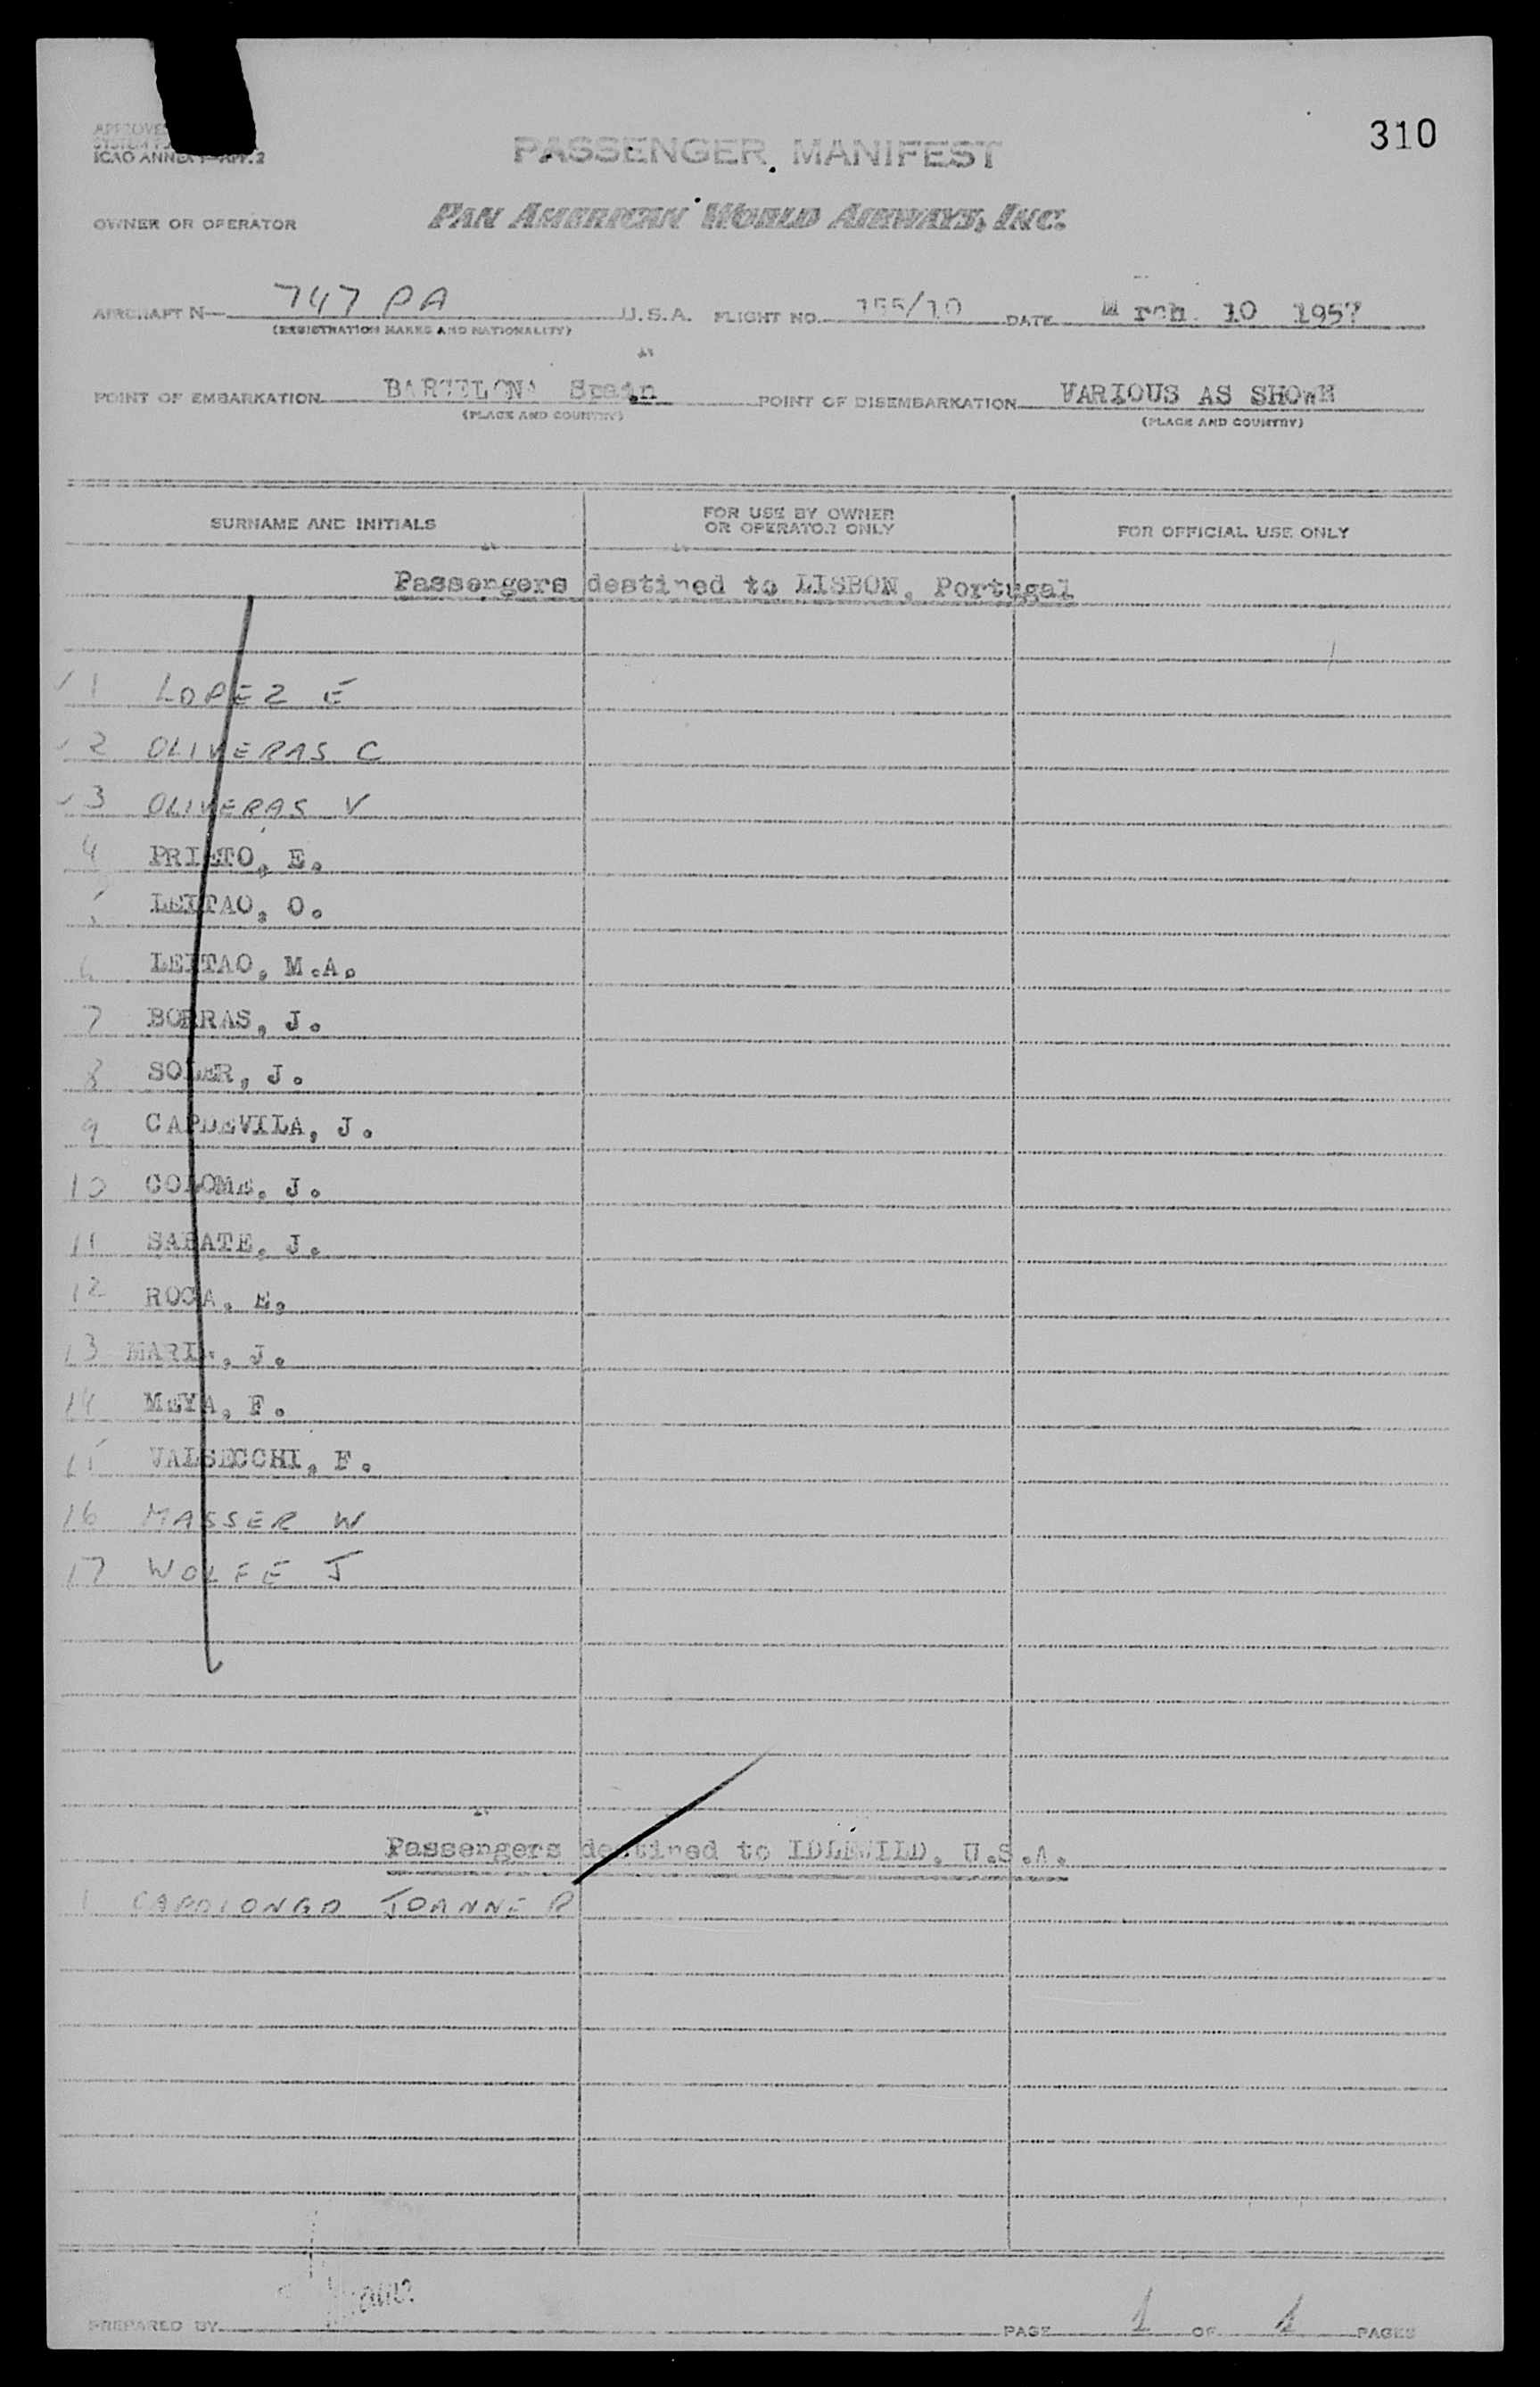 310
ICAO ANNEX 9—APP. 2
PASSENGER MANIFEST
OWNER OR OPERATOR
PAN AMERICAN WORLD AIRWAYS, INC.
AIRCRAFT N— 747 PA U.S.A. FLIGHT NO. 155/10 DATE M rch 10 1957
(REGISTRATION MARKS AND NATIONALITY)
POINT OF EMBARKATION BARCELONA Spain POINT OF DISEMBARKATION VARIOUS AS SHOWN
(PLACE AND COUNTRY) (PLACE AND COUNTRY)
SURNAME AND INITIALS FOR USE BY OWNER OR OPERATOR ONLY FOR OFFICIAL USE ONLY
Passengers destined to LISBON, Portugal
1 LOPEZ E
2 OLIVERAS C
3 OLIVERAS V
4 PRIETO, E.
5 LEITAO, O.
6 LEITAO, M.A.
7 BORRAS, J.
8 SOLER, J.
9 CAPDEVILA, J.
10 COLOME, J.
11 SABATE, J.
12 ROCA, E.
13 MARIN, J.
14 MEYA, F.
15 VALSECCHI, F.
16 MASSER W
17 WOLFE J
Passengers destined to IDLEWILD, U.S.A.
1 CAPOLONGO JOANNE P
PREPARED BY
PAGE 1 OF 1 PAGES